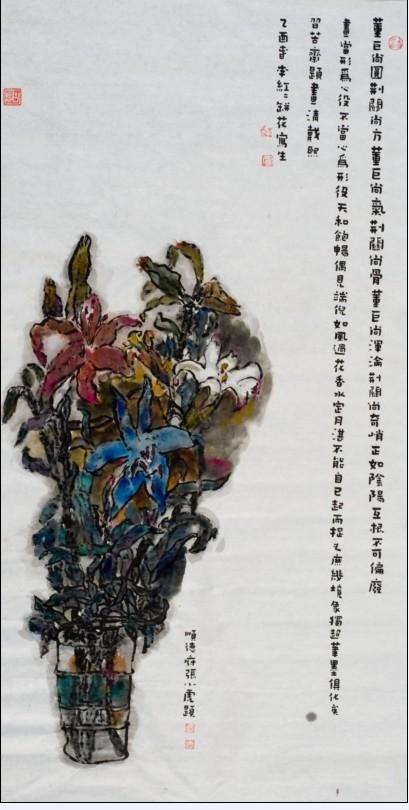 董巨尚圓荆關尚方董巨尚氣荆關尚骨董巨尚渾淪荆關尚奇峭正如陰陽互根不可偏廢
畫當形為心役不當心為形役天和飽暢偶見端倪如風過花香水定月湛不能自已起而捉之庶幾境象獨超筆墨俱化矣
習苦齋題畫清戴熙
乙酉春李紅二鮮花寫生
順德府張小虎題